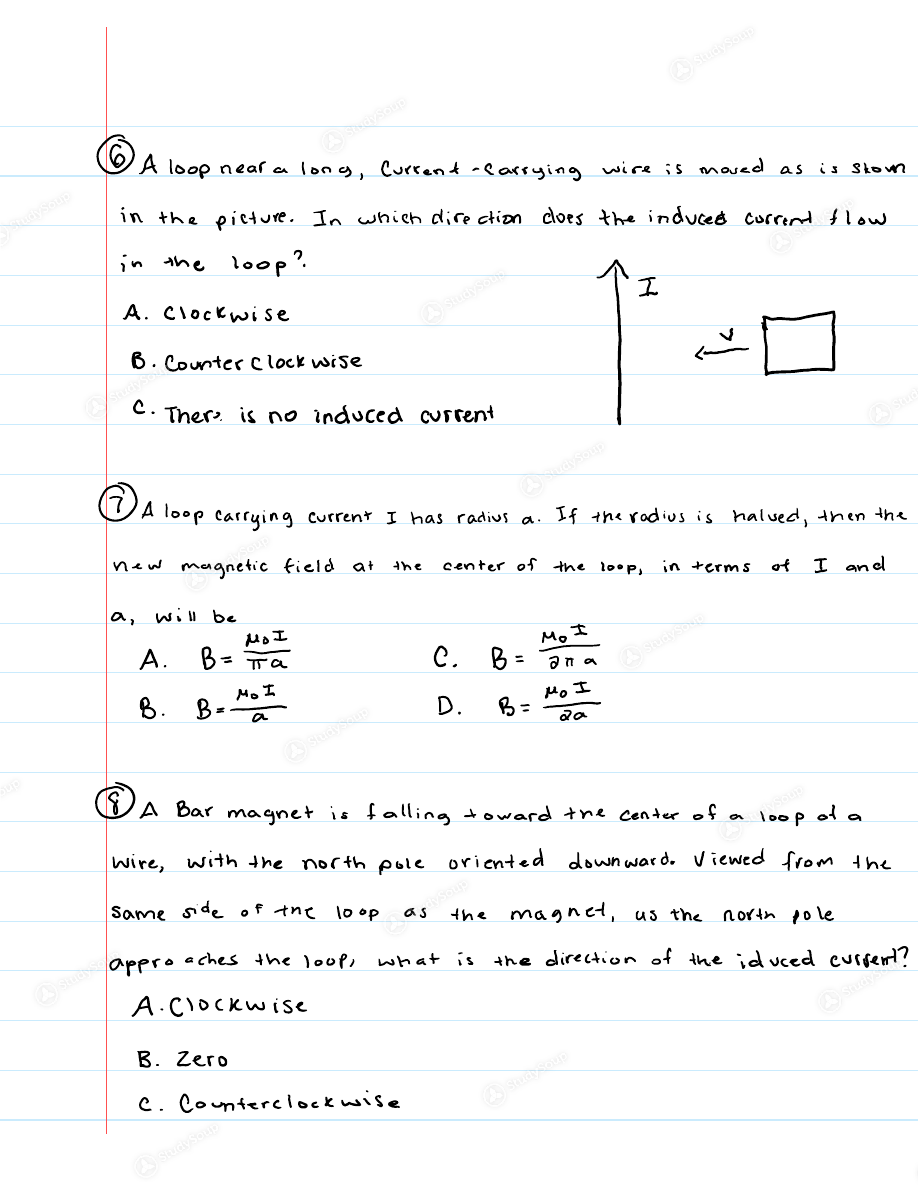 ⑥ A loop near a long, Current-Carrying wire is moved as is shown
in the picture. In which direction does the induced current flow
in the loop?
I
A. Clockwise
V
B. Counter Clockwise
C. There is no induced current
⑦ A loop carrying current I has radius a. If the radius is halved, then the
new magnetic field at the center of the loop, in terms of I and
a, will be
A. B = μ₀I / πa
C. B = μ₀I / 2πa
B. B = μ₀I / a
D. B = μ₀I / 2a
⑧ A Bar magnet is falling toward the center of a loop of a
wire, with the north pole oriented downward. Viewed from the
same side of the loop as the magnet, as the north pole
approaches the loop, what is the direction of the iduced current?
A. Clockwise
B. Zero
C. Counterclockwise
StudySoup